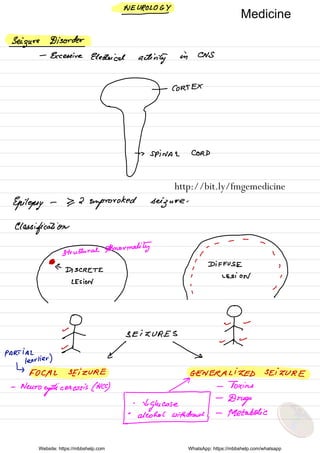 NEUROLOGY
Medicine
Seizure Disorder
- Excessive Electrical activity in CNS
CORTEX
SPINAL CORD
http://bit.ly/fmgemedicine
Epilepsy - ≥ 2 unprovoked seizure.
Classification
Structural Abnormality
DISCRETE LESION
DIFFUSE LESION
SEIZURES
PARTIAL (earlier)
FOCAL SEIZURE
GENERALIZED SEIZURE
- Neurocysticercosis (NCC)
- Toxins
- Drugs
- Metabolic
• ↓glucose
• alcohol withdrawal
Website: https://mbbshelp.com WhatsApp: https://mbbshelp.com/whatsapp